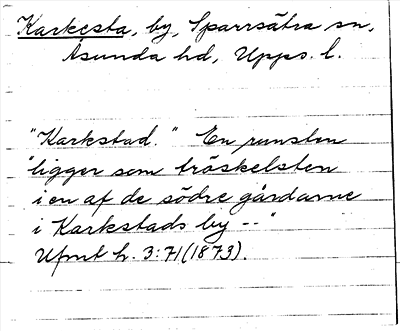 Karkesta, by, Sparrsätra sn,
Åsunda hd, Upps. l.
"Karkstad." En runsten
"ligger som tröskelsten
i en af de södre gårdarne
i Karkstads by --"
Ufmt h. 3:71(1873).